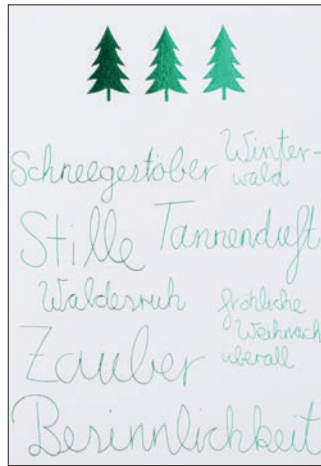 Schneegestöber
Winter-
wald
Stille
Tannenduft
Waldesruh
fröhliche
Weihnach
überall
Zauber
Besinnlichkeit